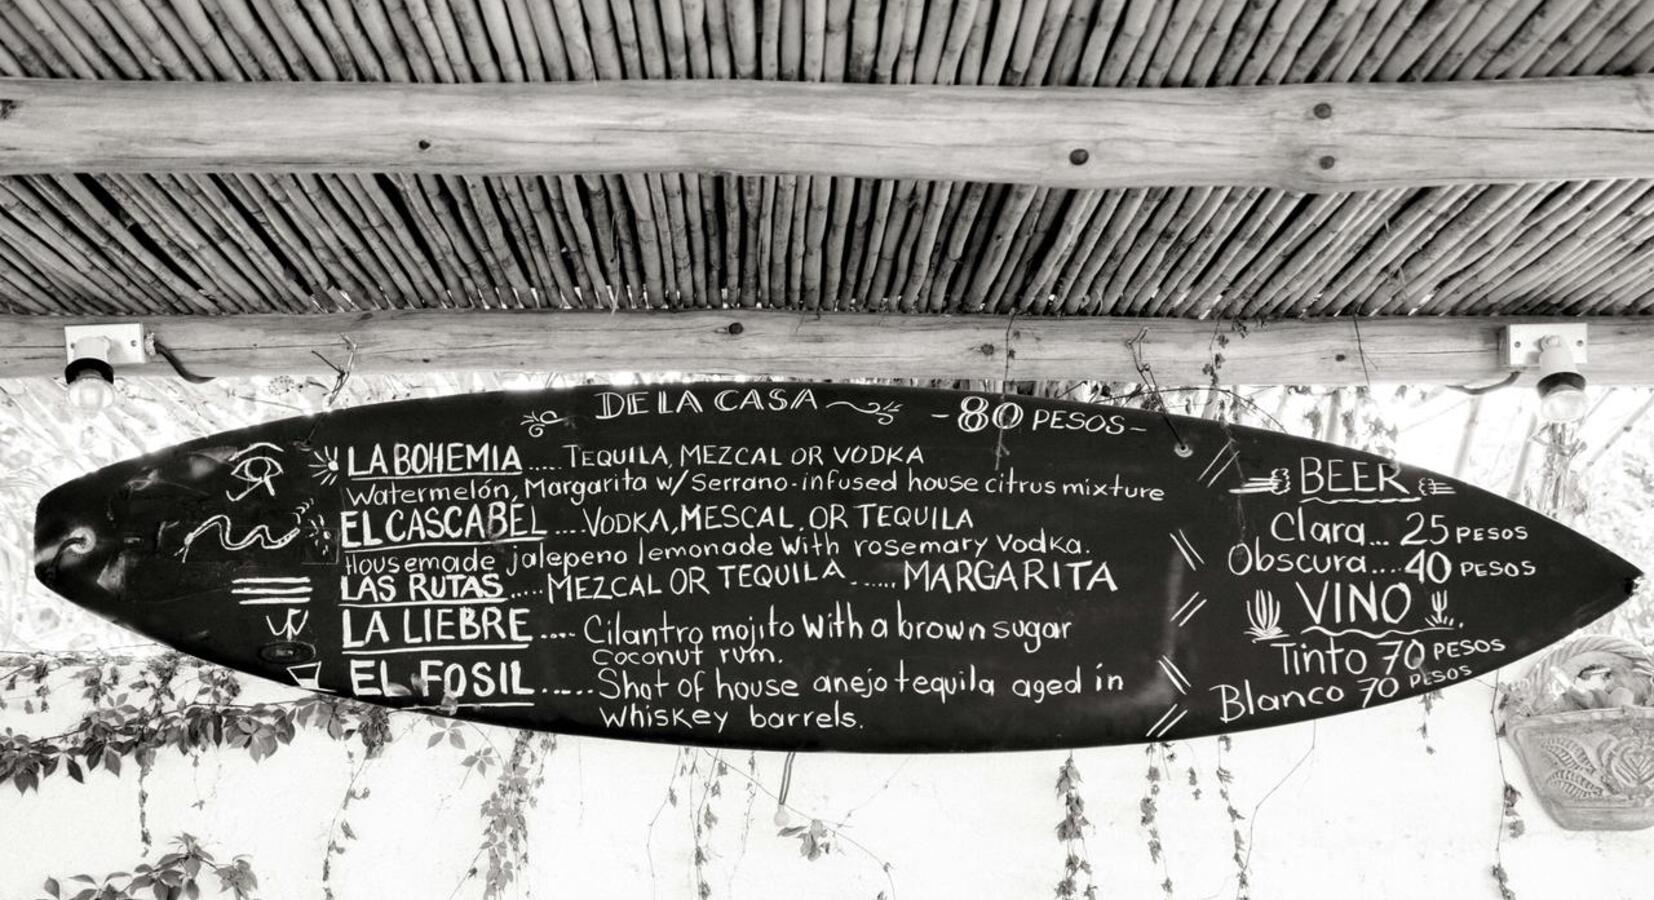 DE LA CASA -80 PESOS-
LA BOHEMIA.....TEQUILA, MEZCAL OR VODKA
Watermelón, Margarita w/Serrano-infused house citrus mixture
EL CASCABEL....VODKA, MESCAL, OR TEQUILA
Housemade jalepeno lemonade with rosemary vodka.
LAS RUTAS.....MEZCAL OR TEQUILA......MARGARITA
LA LIEBRE....Cilantro mojito with a brown sugar
coconut rum.
EL FOSIL......Shot of house anejo tequila aged in
whiskey barrels.
BEER
Clara...25 PESOS
Obscura....40 PESOS
VINO
Tinto 70 PESOS
Blanco 70 PESOS